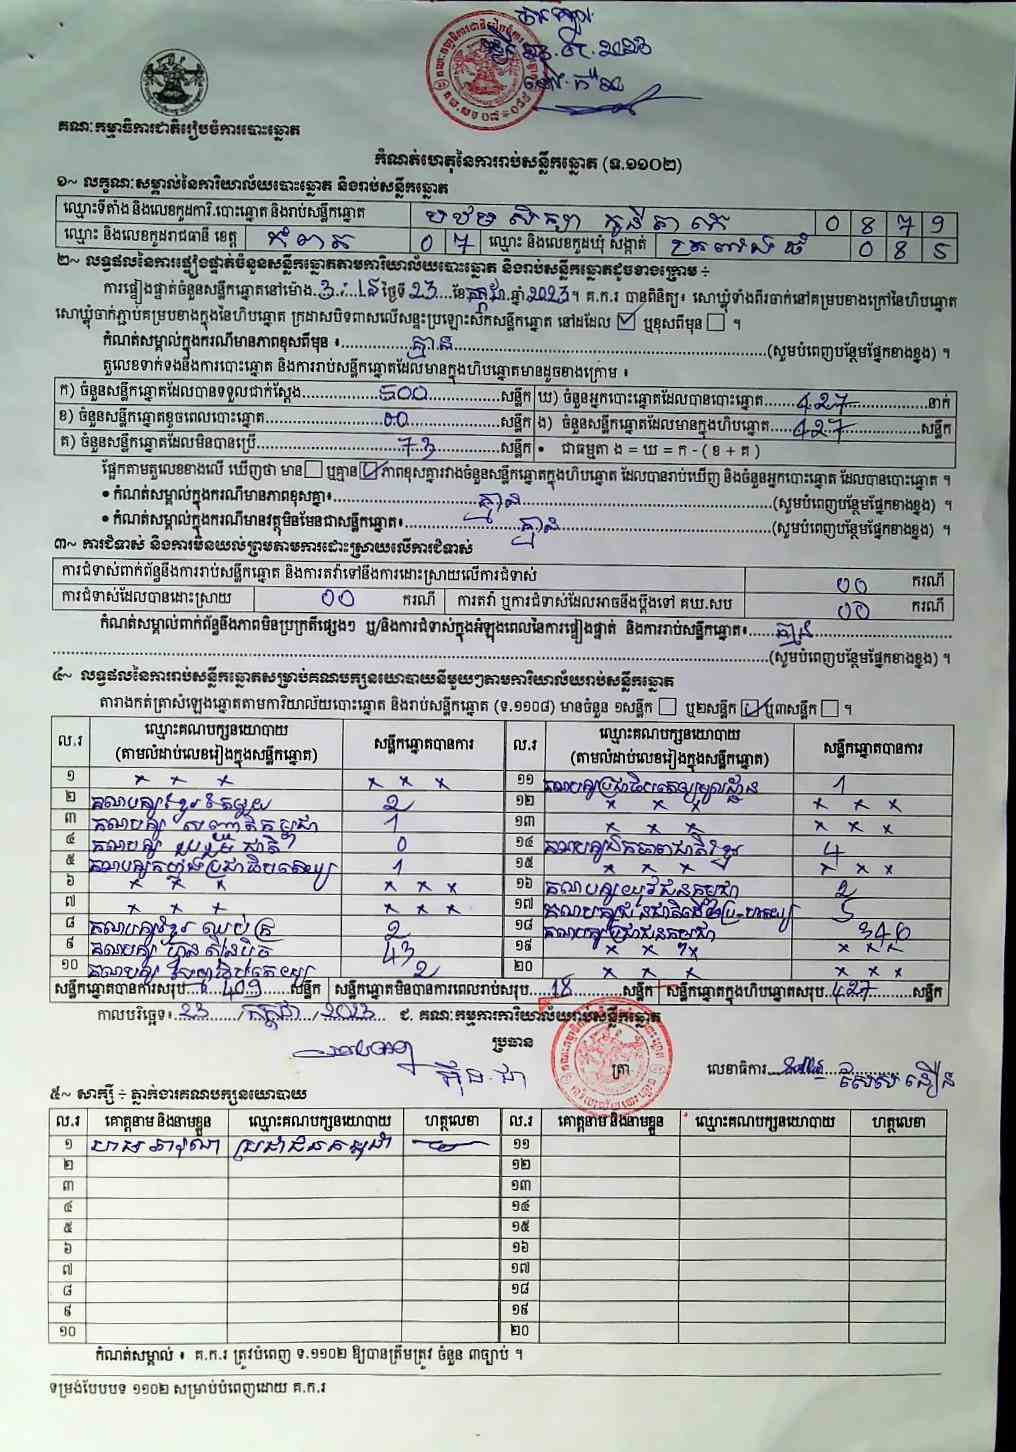 គណៈកម្មាធិការជាតិរៀបចំការបោះឆ្នោត
កំណត់ហេតុនៃការរាប់សន្លឹកឆ្នោត (ទ.១១០២)
១~ លក្ខណៈសម្គាល់នៃការិយាល័យបោះឆ្នោត និងរាប់សន្លឹកឆ្នោត
ឈ្មោះទីតាំង និងលេខកូដការិ.បោះឆ្នោត និងរាប់សន្លឹកឆ្នោត បឋមសិក្សា 0 8 7 9
ឈ្មោះ និងលេខកូដរាជធានី ខេត្ត កំពត 0 7 ឈ្មោះ និងលេខកូដឃុំ សង្កាត់ 0 8 5
២~ លទ្ធផលនៃការផ្ទៀងផ្ទាត់ចំនួនសន្លឹកឆ្នោតតាមការិយាល័យបោះឆ្នោត និងរាប់សន្លឹកឆ្នោតដូចខាងក្រោម ÷
ការផ្ទៀងផ្ទាត់ចំនួនសន្លឹកឆ្នោតនៅម៉ោង 3:15 ថ្ងៃទី 23 ខែ កក្កដា ឆ្នាំ 2023។ គ.ក.រ បានពិនិត្យ៖ សោឃ្លុំទាំងពីរចាក់នៅគម្របខាងក្រៅនៃហិបឆ្នោត
សោឃ្លុំចាក់ភ្ជាប់គម្របខាងក្នុងនៃហិបឆ្នោត ក្រដាសបិទពាសលើសន្ទះប្រឡោះសឹកសន្លឹកឆ្នោត នៅដដែល ☑ ឬខុសពីមុន ☐ ។
កំណត់សម្គាល់ក្នុងករណីមានភាពខុសពីមុន ៖ គ្មាន (សូមបំពេញបន្ថែមផ្នែកខាងខ្នង) ។
តួលេខទាក់ទងនឹងការបោះឆ្នោត និងការរាប់សន្លឹកឆ្នោតដែលមានក្នុងហិបឆ្នោតមានដូចខាងក្រោម ៖
ក) ចំនួនសន្លឹកឆ្នោតដែលបានទទួលជាក់ស្តែង 500 សន្លឹក ឃ) ចំនួនអ្នកបោះឆ្នោតដែលបានបោះឆ្នោត 427 នាក់
ខ) ចំនួនសន្លឹកឆ្នោតខូចពេលបោះឆ្នោត 00 សន្លឹក ង) ចំនួនសន្លឹកឆ្នោតដែលមានក្នុងហិបឆ្នោត 427 សន្លឹក
គ) ចំនួនសន្លឹកឆ្នោតដែលមិនបានប្រើ 73 សន្លឹក • ជាធម្មតា ង = ឃ = ក - ( ខ + គ )
ផ្អែកតាមតួលេខខាងលើ ឃើញថា មាន ☐ ឬគ្មាន ☑ ភាពខុសគ្នារវាងចំនួនសន្លឹកឆ្នោតក្នុងហិបឆ្នោត ដែលបានរាប់ឃើញ និងចំនួនអ្នកបោះឆ្នោត ដែលបានបោះឆ្នោត ។
• កំណត់សម្គាល់ក្នុងករណីមានភាពខុសគ្នា៖ គ្មាន (សូមបំពេញបន្ថែមផ្នែកខាងខ្នង) ។
• កំណត់សម្គាល់ក្នុងករណីមានវត្ថុមិនមែនជាសន្លឹកឆ្នោត៖ គ្មាន (សូមបំពេញបន្ថែមផ្នែកខាងខ្នង) ។
៣~ ការជំទាស់ និងការមិនយល់ព្រមតាមការដោះស្រាយលើការជំទាស់
ការជំទាស់ពាក់ព័ន្ធនឹងការរាប់សន្លឹកឆ្នោត និងការតវ៉ាទៅនឹងការដោះស្រាយលើការជំទាស់ 00 ករណី
ការជំទាស់ដែលបានដោះស្រាយ 00 ករណី ការតវ៉ា ឬការជំទាស់ដែលអាចនឹងប្ដឹងទៅ គឃ.សប 00 ករណី
កំណត់សម្គាល់ពាក់ព័ន្ធនឹងភាពមិនប្រក្រតីផ្សេងៗ ឬ/និងការជំទាស់ក្នុងអំឡុងពេលនៃការផ្ទៀងផ្ទាត់ និងការរាប់សន្លឹកឆ្នោត៖ គ្មាន
(សូមបំពេញបន្ថែមផ្នែកខាងខ្នង) ។
៤~ លទ្ធផលនៃការរាប់សន្លឹកឆ្នោតសម្រាប់គណបក្សនយោបាយនីមួយៗតាមការិយាល័យរាប់សន្លឹកឆ្នោត
តារាងកត់ត្រាសំឡេងឆ្នោតតាមការិយាល័យបោះឆ្នោត និងរាប់សន្លឹកឆ្នោត (ទ.១១០៨) មានចំនួន ១សន្លឹក ☐ ឬ២សន្លឹក ☑ ឬ៣សន្លឹក ☐ ។
ល.រ ឈ្មោះគណបក្សនយោបាយ (តាមលំដាប់លេខរៀងក្នុងសន្លឹកឆ្នោត) សន្លឹកឆ្នោតបានការ ល.រ ឈ្មោះគណបក្សនយោបាយ (តាមលំដាប់លេខរៀងក្នុងសន្លឹកឆ្នោត) សន្លឹកឆ្នោតបានការ
១ x x x x x x ១១ គណបក្សប្រជាធិបតេយ្យមូលដ្ឋាន 1
២ គណបក្សខ្មែររួបរួម 2 ១២ x x x x x x
៣ គណបក្ស សញ្ជាតិកម្ពុជា 1 ១៣ x x x x x x
៤ គណបក្ស រួបរួមជាតិ 0 ១៤ គណបក្សឯកភាពជាតិខ្មែរ 4
៥ គណបក្សកម្លាំងប្រជាធិបតេយ្យ 1 ១៥ x x x x x x
៦ x x x x x x ១៦ គណបក្សយុវជនកម្ពុជា 2
៧ x x x x x x ១៧ គណបក្សជនជាតិដើមប្រជាធិបតេយ្យ 5
៨ គណបក្សខ្មែរឈប់ក្រ 2 ១៨ គណបក្សប្រជាជនកម្ពុជា 346
៩ គណបក្ស ហ្វ៊ុនស៊ិនប៉ិច 43 ១៩ x x x x x x
១០ គណបក្ស សំបុកឃ្មុំ 2 ២០ x x x x x x
សន្លឹកឆ្នោតបានការសរុប 409 សន្លឹក សន្លឹកឆ្នោតមិនបានការពេលរាប់សរុប 18 សន្លឹក សន្លឹកឆ្នោតក្នុងហិបឆ្នោតសរុប 427 សន្លឹក
កាលបរិច្ឆេទ៖ 23 / កក្កដា / 2023 ជ. គណៈកម្មការការិយាល័យរាប់សន្លឹកឆ្នោត
ប្រធាន
ត្រា
លេខាធិការ
៥~ សាក្សី ÷ ភ្នាក់ងារគណបក្សនយោបាយ
ល.រ គោត្តនាម និងនាមខ្លួន ឈ្មោះគណបក្សនយោបាយ ហត្ថលេខា ល.រ គោត្តនាម និងនាមខ្លួន ឈ្មោះគណបក្សនយោបាយ ហត្ថលេខា
១ ប្រជាជនកម្ពុជា ១១
២ ១២
៣ ១៣
៤ ១៤
៥ ១៥
៦ ១៦
៧ ១៧
៨ ១៨
៩ ១៩
១០ ២០
កំណត់សម្គាល់ ៖ គ.ក.រ ត្រូវបំពេញ ទ.១១០២ ឱ្យបានត្រឹមត្រូវ ចំនួន ៣ច្បាប់ ។
ទម្រង់បែបបទ ១១០២ សម្រាប់បំពេញដោយ គ.ក.រ